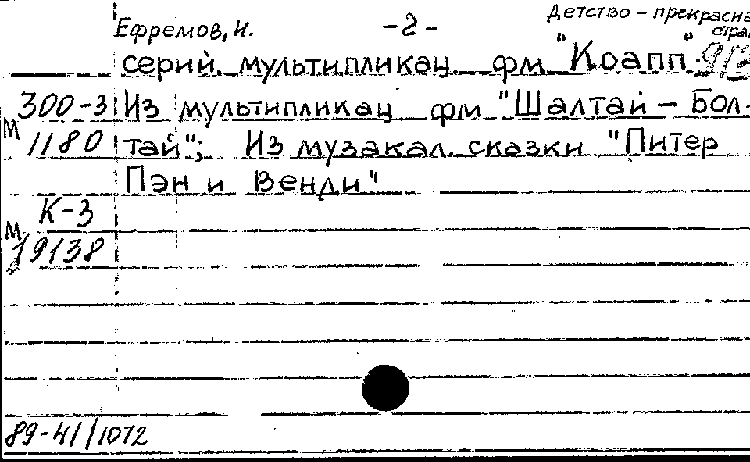 Ефремов, И. -2- Детство – прекрасная
стра
серий. мультипликац фм "Коапп".
300-3 Из мультипликац фм "Шалтай – Бол-
м 1180 тай"; Из музакал. сказки "Питер
Пэн и Венди"
К-3
м 19138
89-41/1072